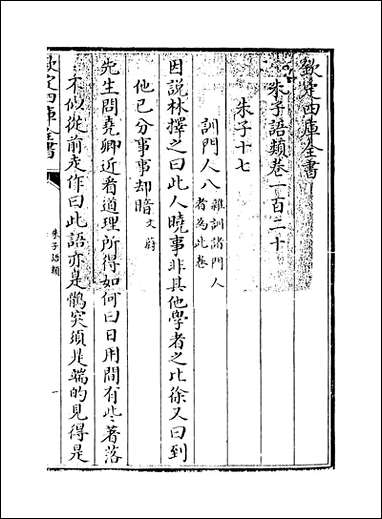 欽定四庫全書
朱子語類卷一百二十
朱子十七
訓門人八 雜訓諸門人者為此卷
因說林擇之曰此人曉事非其他學者之比徐又曰到
他已分事事却暗 文蔚
先生問堯卿近看道理所得如何曰日用間有些著落
不似從前走作曰此語亦是鶻突須是端的見得是
欽定四庫全書
朱子語類
一